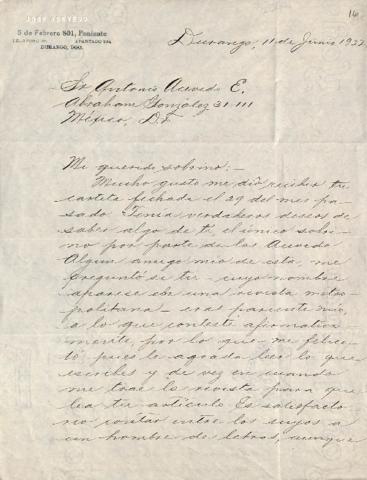 16
5 de Febrero 801, Poniente
APARTADO
DURANGO, DGO.
Durango, 11 de Junio 1937
Sr Antonio Acevedo E.
Abraham Gonzalez 31-111
México, D.F.
Mi querido sobrino:-
Mucho gusto me dió recibir tu
cartita fechada el 29 del mes pa-
sado. Tenia verdaderos deseos de
saber algo de ti el único sobri-
no por parte de los Acevedo
Algún amigo mio de esta, me
preguntó si tu - cuyo nombre
aparece en una revista metro-
politana - eras pariente mio,
a lo que contesté afirmativa-
mente, por lo que me felici-
tó, pues le agrada leer lo que
escribes y de vez en cuando
me trae la revista para que
lea tu artículo. Es satisfacto
rio contar entre los suyos a
un hombre de letras, aunque